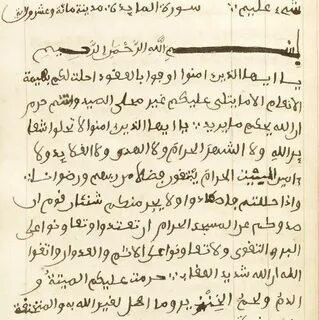 شىء عليم :: سورة المايدة مدينة مائة وعشرون
بسم الله الرحمن الرحيم
يا ايها الذين امنوا اوفوا بالعقود احلت لكم بهيمة
الانعام الا ما يتلى عليكم غير محلى الصيد وانتم حرم
ان الله يحكم ما يريد :: يا ايها الذين امنوا لا تحلوا شعا
ير الله ولا الشهر الحرام ولا الهدى ولا القلايد ولا
ءامين البيت الحرام يبتغون فضلا من ربهم ورضوانا
واذا حللتم فاصطادوا ولا يجرمنكم شنئان قوم ان
صدوكم عن المسجد الحرام ان تعتدوا وتعاونوا على
البر والتقوى ولا تعاونوا على الاثم والعدوان واتقوا
الله ان الله شديد العقاب :: حرمت عليكم الميتة و
الدم ولحم الخنزير وما اهل لغير الله به والمنخنقة